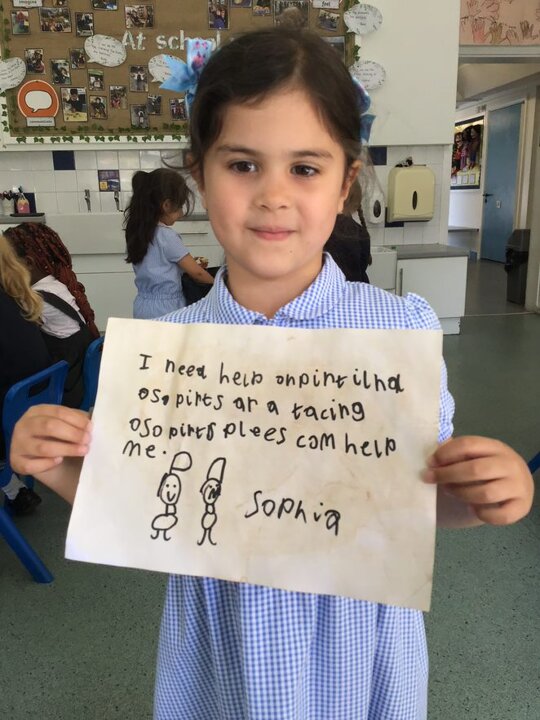 At school
I need help onpirtilnd
oso pirts ar a tacing
oso pirts plees com help
me.
Sophia